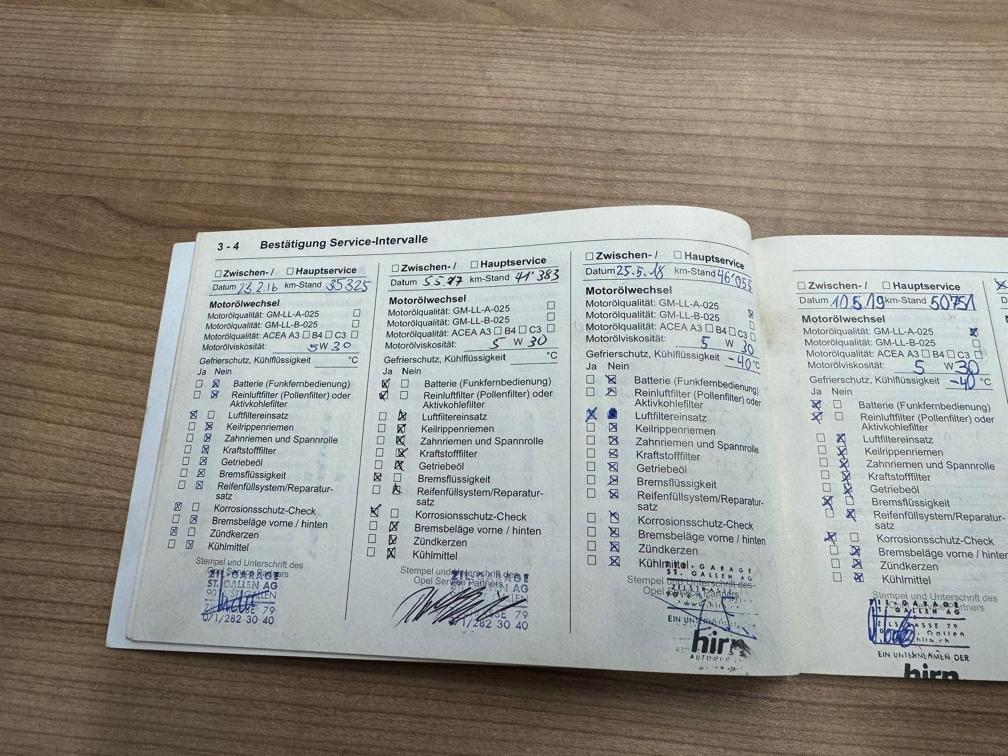 3 - 4 Bestätigung Service-Intervalle
Zwischen- / Hauptservice
Datum 23.2.16 km-Stand 35325
Motorölwechsel
Motorölqualität: GM-LL-A-025
Motorölqualität: GM-LL-B-025
Motorölqualität: ACEA A3 B4 C3
Motorölviskosität: 5 W 30
Gefrierschutz, Kühlflüssigkeit °C
Ja Nein
Batterie (Funkfernbedienung)
Reinluftfilter (Pollenfilter) oder
Aktivkohlefilter
Luftfiltereinsatz
Keilrippenriemen
Zahnriemen und Spannrolle
Kraftstofffilter
Getriebeöl
Bremsflüssigkeit
Reifenfüllsystem/Reparatur-
satz
Korrosionsschutz-Check
Bremsbeläge vorne / hinten
Zündkerzen
Kühlmittel
Stempel und Unterschrift des
Opel Service Partners
ZIL-GARAGE
ST. GALLEN AG
79
071/282 30 40
Zwischen- / Hauptservice
Datum 5.5.17 km-Stand 41'383
Motorölwechsel
Motorölqualität: GM-LL-A-025
Motorölqualität: GM-LL-B-025
Motorölqualität: ACEA A3 B4 C3
Motorölviskosität: 5 W 30
Gefrierschutz, Kühlflüssigkeit °C
Ja Nein
Batterie (Funkfernbedienung)
Reinluftfilter (Pollenfilter) oder
Aktivkohlefilter
Luftfiltereinsatz
Keilrippenriemen
Zahnriemen und Spannrolle
Kraftstofffilter
Getriebeöl
Bremsflüssigkeit
Reifenfüllsystem/Reparatur-
satz
Korrosionsschutz-Check
Bremsbeläge vorne / hinten
Zündkerzen
Kühlmittel
Stempel und Unterschrift des
Opel Service Partners
79
/282 30 40
Zwischen- / Hauptservice
Datum 25.5.18 km-Stand
Motorölwechsel
Motorölqualität: GM-LL-A-025
Motorölqualität: GM-LL-B-025
Motorölqualität: ACEA A3 B4 C3
Motorölviskosität: 5 W 30
Gefrierschutz, Kühlflüssigkeit -40 °C
Ja Nein
Batterie (Funkfernbedienung)
Reinluftfilter (Pollenfilter) oder
Aktivkohlefilter
Luftfiltereinsatz
Keilrippenriemen
Zahnriemen und Spannrolle
Kraftstofffilter
Getriebeöl
Bremsflüssigkeit
Reifenfüllsystem/Reparatur-
satz
Korrosionsschutz-Check
Bremsbeläge vorne / hinten
Zündkerzen
Kühlmittel
ST. GALLEN AG
Stempel
Opel
hirn
Zwischen- / Hauptservice
Datum 10.5.19 km-Stand 50751
Motorölwechsel
Motorölqualität: GM-LL-A-025
Motorölqualität: GM-LL-B-025
Motorölqualität: ACEA A3 B4 C3
Motorölviskosität: 5 W 30
Gefrierschutz, Kühlflüssigkeit -40 °C
Ja Nein
Batterie (Funkfernbedienung)
Reinluftfilter (Pollenfilter) oder
Aktivkohlefilter
Luftfiltereinsatz
Keilrippenriemen
Zahnriemen und Spannrolle
Kraftstofffilter
Getriebeöl
Bremsflüssigkeit
Reifenfüllsystem/Reparatur-
satz
Korrosionsschutz-Check
Bremsbeläge vorne / hinten
Zündkerzen
Kühlmittel
Stempel und Unterschrift des
EIN UNTERNEHMEN DER
hirn